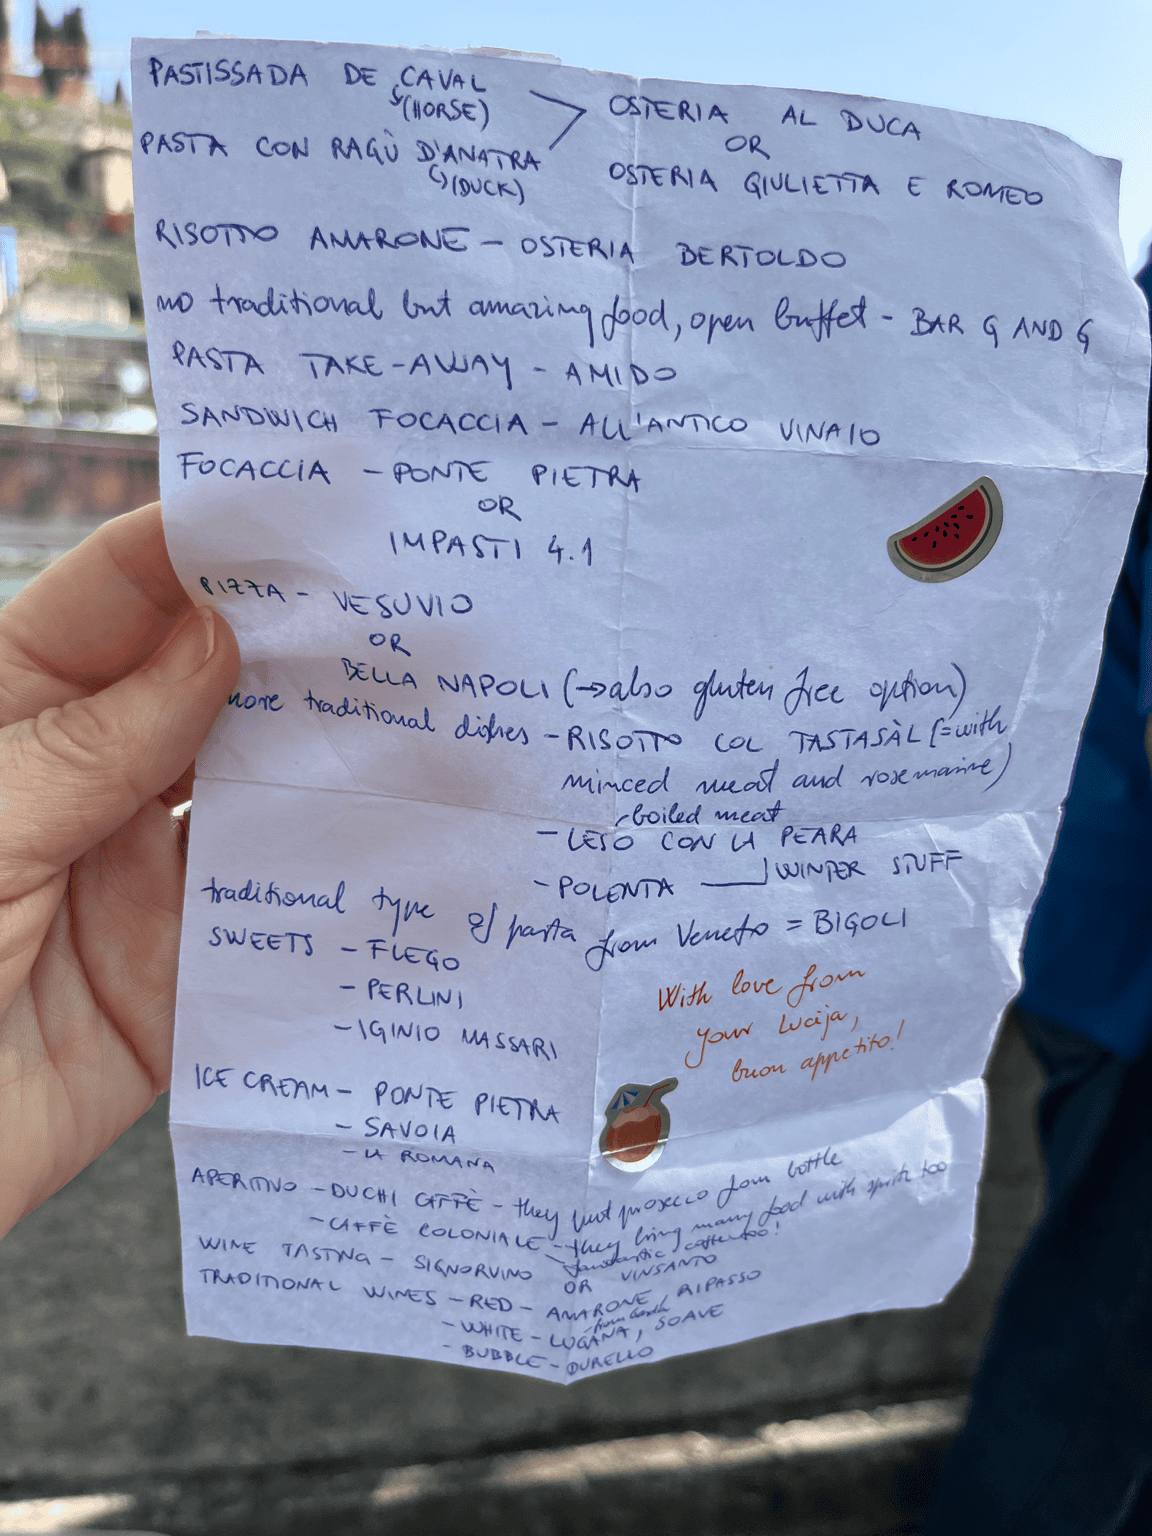 PASTISSADA DE CAVAL
(HORSE)
PASTA CON RAGÙ D'ANATRA
(DUCK)
OSTERIA AL DUCA
OR
OSTERIA GIULIETTA E ROMEO
RISOTTO AMARONE - OSTERIA BERTOLDO
no traditional but amazing food, open buffet - BAR G AND G
PASTA TAKE-AWAY - AMIDO
SANDWICH FOCACCIA - ALL'ANTICO VINAIO
FOCACCIA - PONTE PIETRA
OR
IMPASTI 4.1
PIZZA - VESUVIO
OR
BELLA NAPOLI (→also gluten free option)
more traditional dishes - RISOTTO COL TASTASÀL (=with
minced meat and rosemarine)
boiled meat
- LESO CON LA PEARA
- POLENTA WINTER STUFF
traditional type of pasta from Veneto = BIGOLI
SWEETS - FLEGO
- PERLINI
- IGINIO MASSARI
With love from
your Lucija,
buon appetito!
ICE CREAM - PONTE PIETRA
- SAVOIA
- LA ROMANA
APERITIVO - DUCHI CAFFÈ - they put prosecco from bottle
- CAFFÈ COLONIALE - they bring many food with spritz too
- fantastic coffee too!
WINE TASTING - SIGNORVINO OR VINSANTO
TRADITIONAL WINES - RED - AMARONE, RIPASSO
- WHITE - LUGANA, SOAVE
- BUBBLE - DURELLO